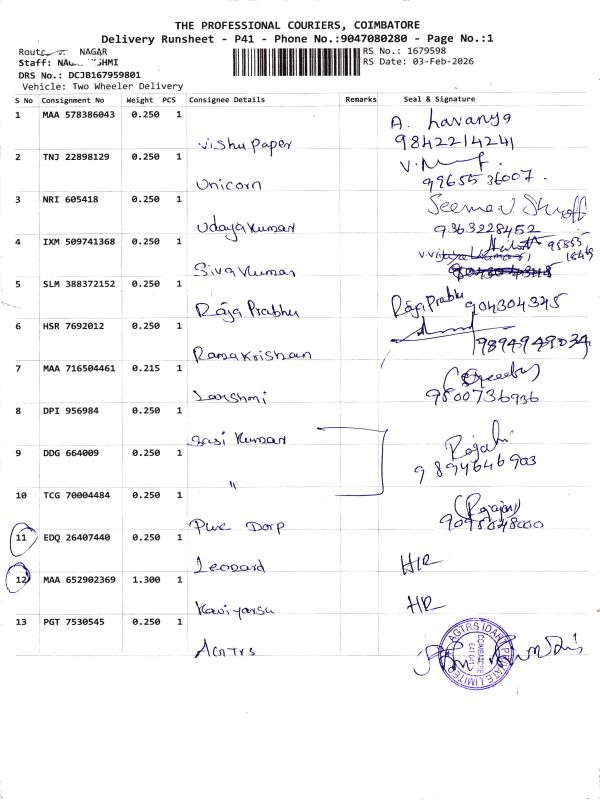 THE PROFESSIONAL COURIERS, COIMBATORE
Delivery Runsheet - P41 - Phone No.:9047080280 - Page No.:1
NAGAR
RS No.: 1679598
Staff:
RS Date: 03-Feb-2026
DRS No.: DCJB167959801
Vehicle: Two Wheeler Delivery
S No Consignment No Weight PCS Consignee Details Remarks Seal & Signature
1 MAA 578386043 0.250 1 A. Lavanya
Vishu Paper 9842214241
2 TNJ 22898129 0.250 1
Unicorn 9965536007.
3 NRI 605418 0.250 1 Seema V. Shroff
Udaya Kumar 9363228452
4 IXM 509741368 0.250 1
Siva Kumar
5 SLM 388372152 0.250 1 Raja Prabhu 904304345
Raja Prabhu
6 HSR 7692012 0.250 1
Rama Krishnan 9894949034
7 MAA 716504461 0.215 1
Lakshmi 9800736936
8 DPI 956984 0.250 1
Sasi Kumar
9 DDG 664009 0.250 1
" 9894646903
10 TCG 70004484 0.250 1
Pure Dorp 9095048000
11 EDQ 26407440 0.250 1
Leopard H/R
12 MAA 652902369 1.300 1
Kaviyarsu H/R
13 PGT 7530545 0.250 1
AGTRS
AGTRS IDAHI PRIVATE LIMITED
COIMBATORE